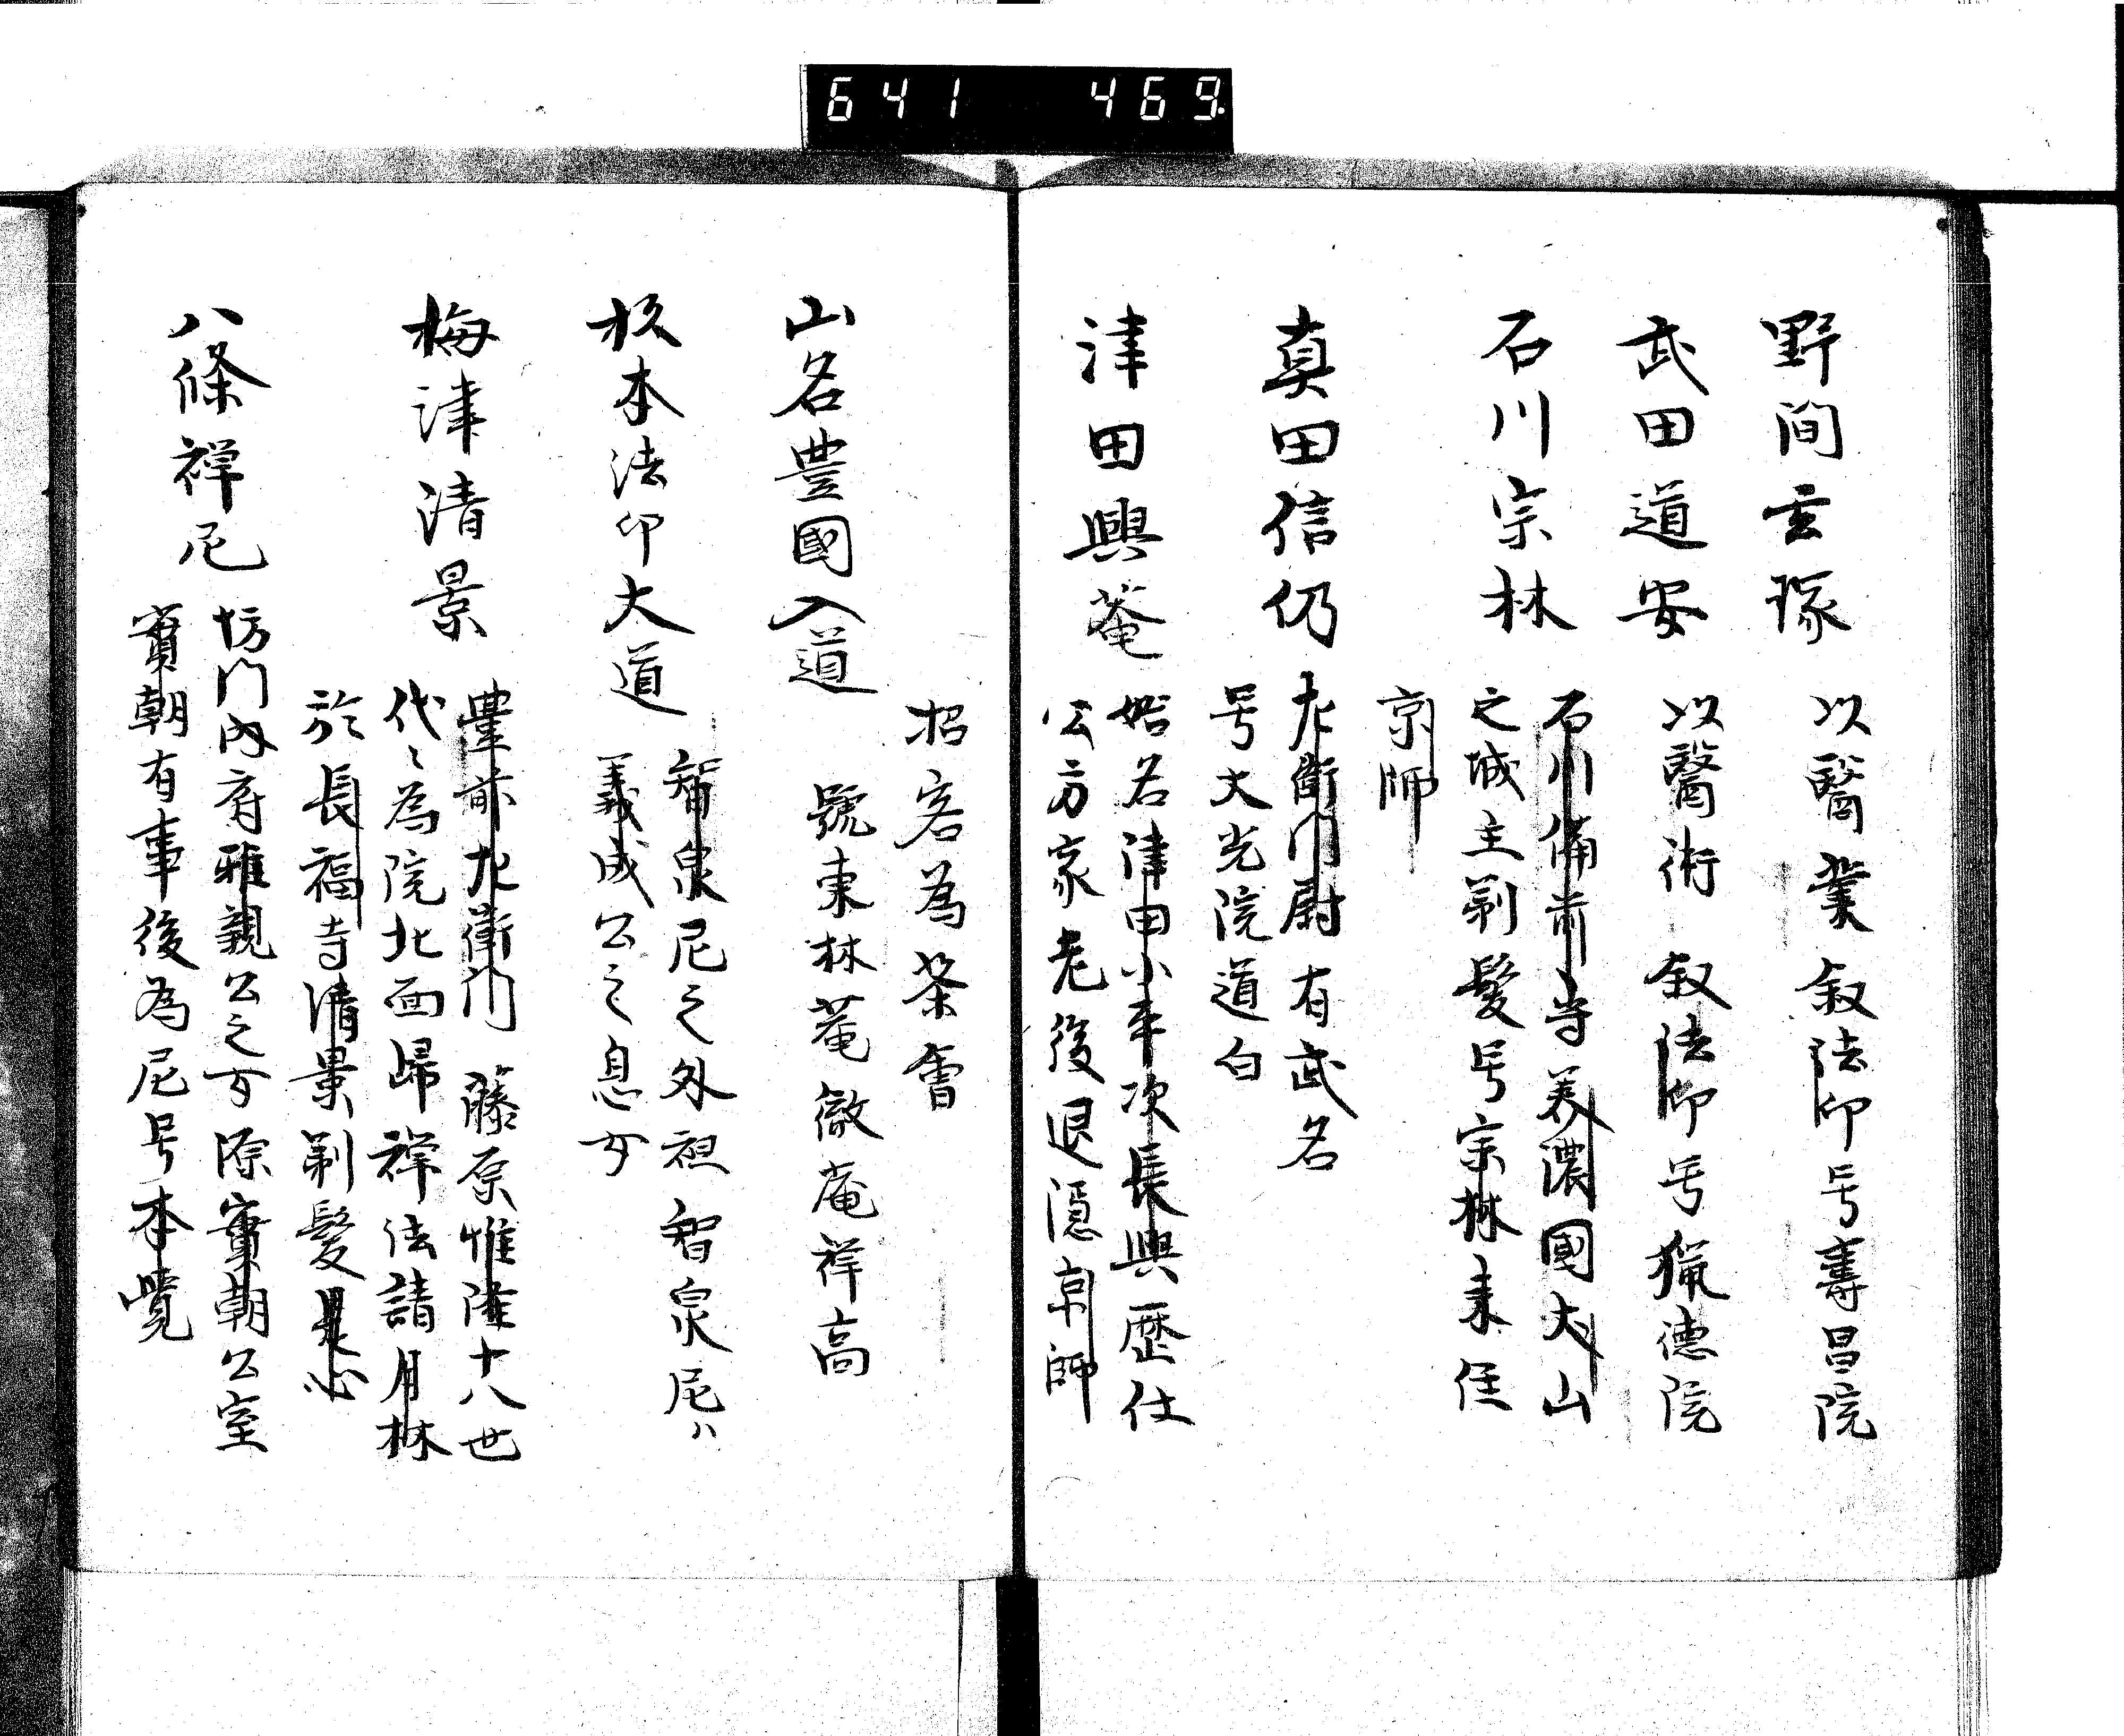 641 469
野間玄琢 以醫業叙法印号壽昌院
武田道安 以醫術 叙法印号猟德院
石川宗林 石川備前守美濃國犬山
之城主剃髪号宗林來住
京師
真田信仍 左衛門尉有武名
号大光院道白
津田興菴 始名津田小平次長興歴仕
公方家老後退隠京師
招客為茶會
山名豊國入道 號東林菴徹庵祥高
杦本法印大道 智泉尼之外祖智泉尼ハ
義成公之息女
梅津清景 豊前左衛門 藤原惟隆十八世
代々為院北面歸禅法請月林
於長福寺清景剃髪是心
八條禅尼 坊門内府雅親公之女除實朝公室
實朝有事後為尼号本覺